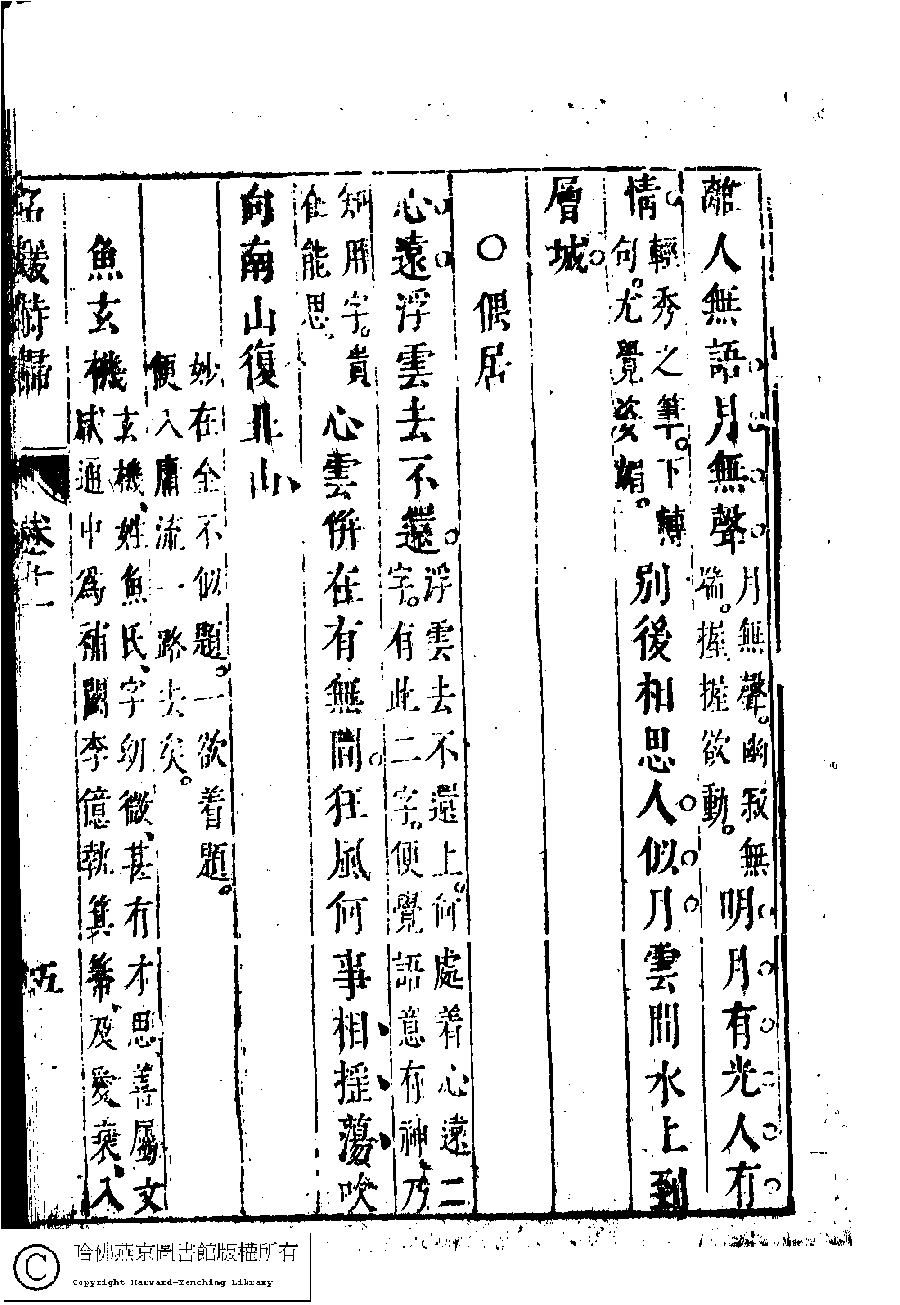 離人無語月無聲
月無聲。幽寂無
端。握握欲動。
明月有光人有
情。
輕秀之筆。下轉
句。尤覺姿媚。
別後相思人似月雲間水上到
層城。
○偶居
心遠浮雲去不還。
浮雲去不還上。何處着心遠二
字。有此二字。便覺語意有神、乃
知用字。貴
在能思。
心雲併在有無間。狂風何事相搖蕩吹
向南山復北山、
妙在全不似題。一欲着題。
便入庸流一路去矣。
魚玄機
玄機、姓魚氏、字幼微、甚有才思、善屬文
咸通中為補闕李億執箕箒、及愛衰、入
名媛詩歸
卷十一
五
哈佛燕京圖書館版權所有
Copyright Harvard-Yenching Library